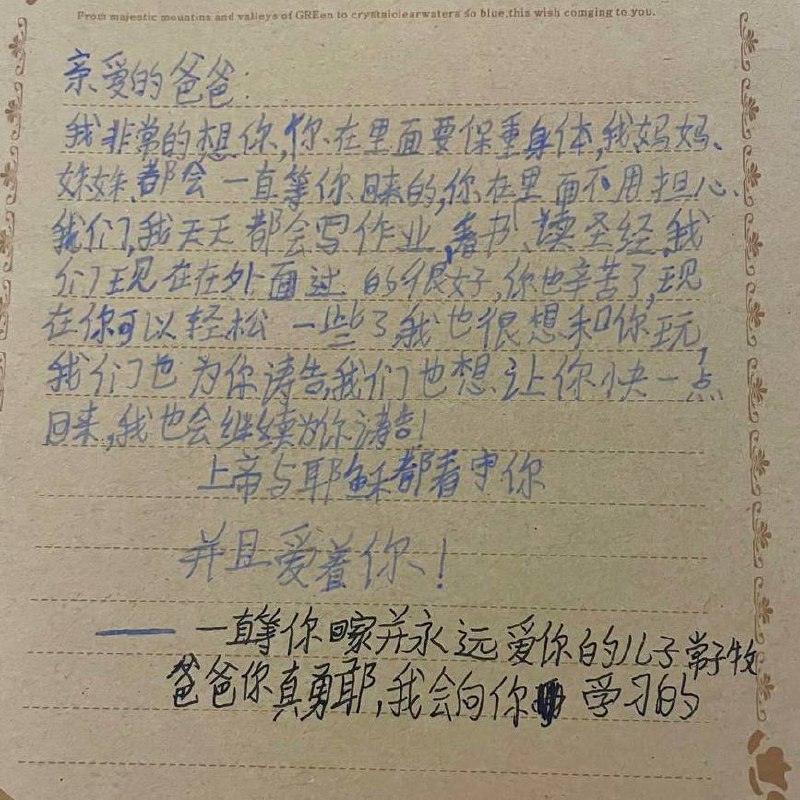 From majestic mountins and valleys of GREen to crystalclearwaters so blue,this wish comging to you.
亲爱的爸爸:
我非常的想你,你在里面要保重身体,我妈妈、
妹妹、都会一直等你回来的,你在里面不用担心、
我们,我天天都会写作业,看书、读圣经,我
们现在在外面过的很好,你也辛苦了,现
在你可以轻松一些了,我也很想和你玩,
我们也为你涛告,我们也想让你快一点
回来,我也会继续为你涛告!
上帝与耶稣都看守你
并且爱着你!
——一直等你回家并永远爱你的儿子常子牧
爸爸你真勇耶,我会向你学习的